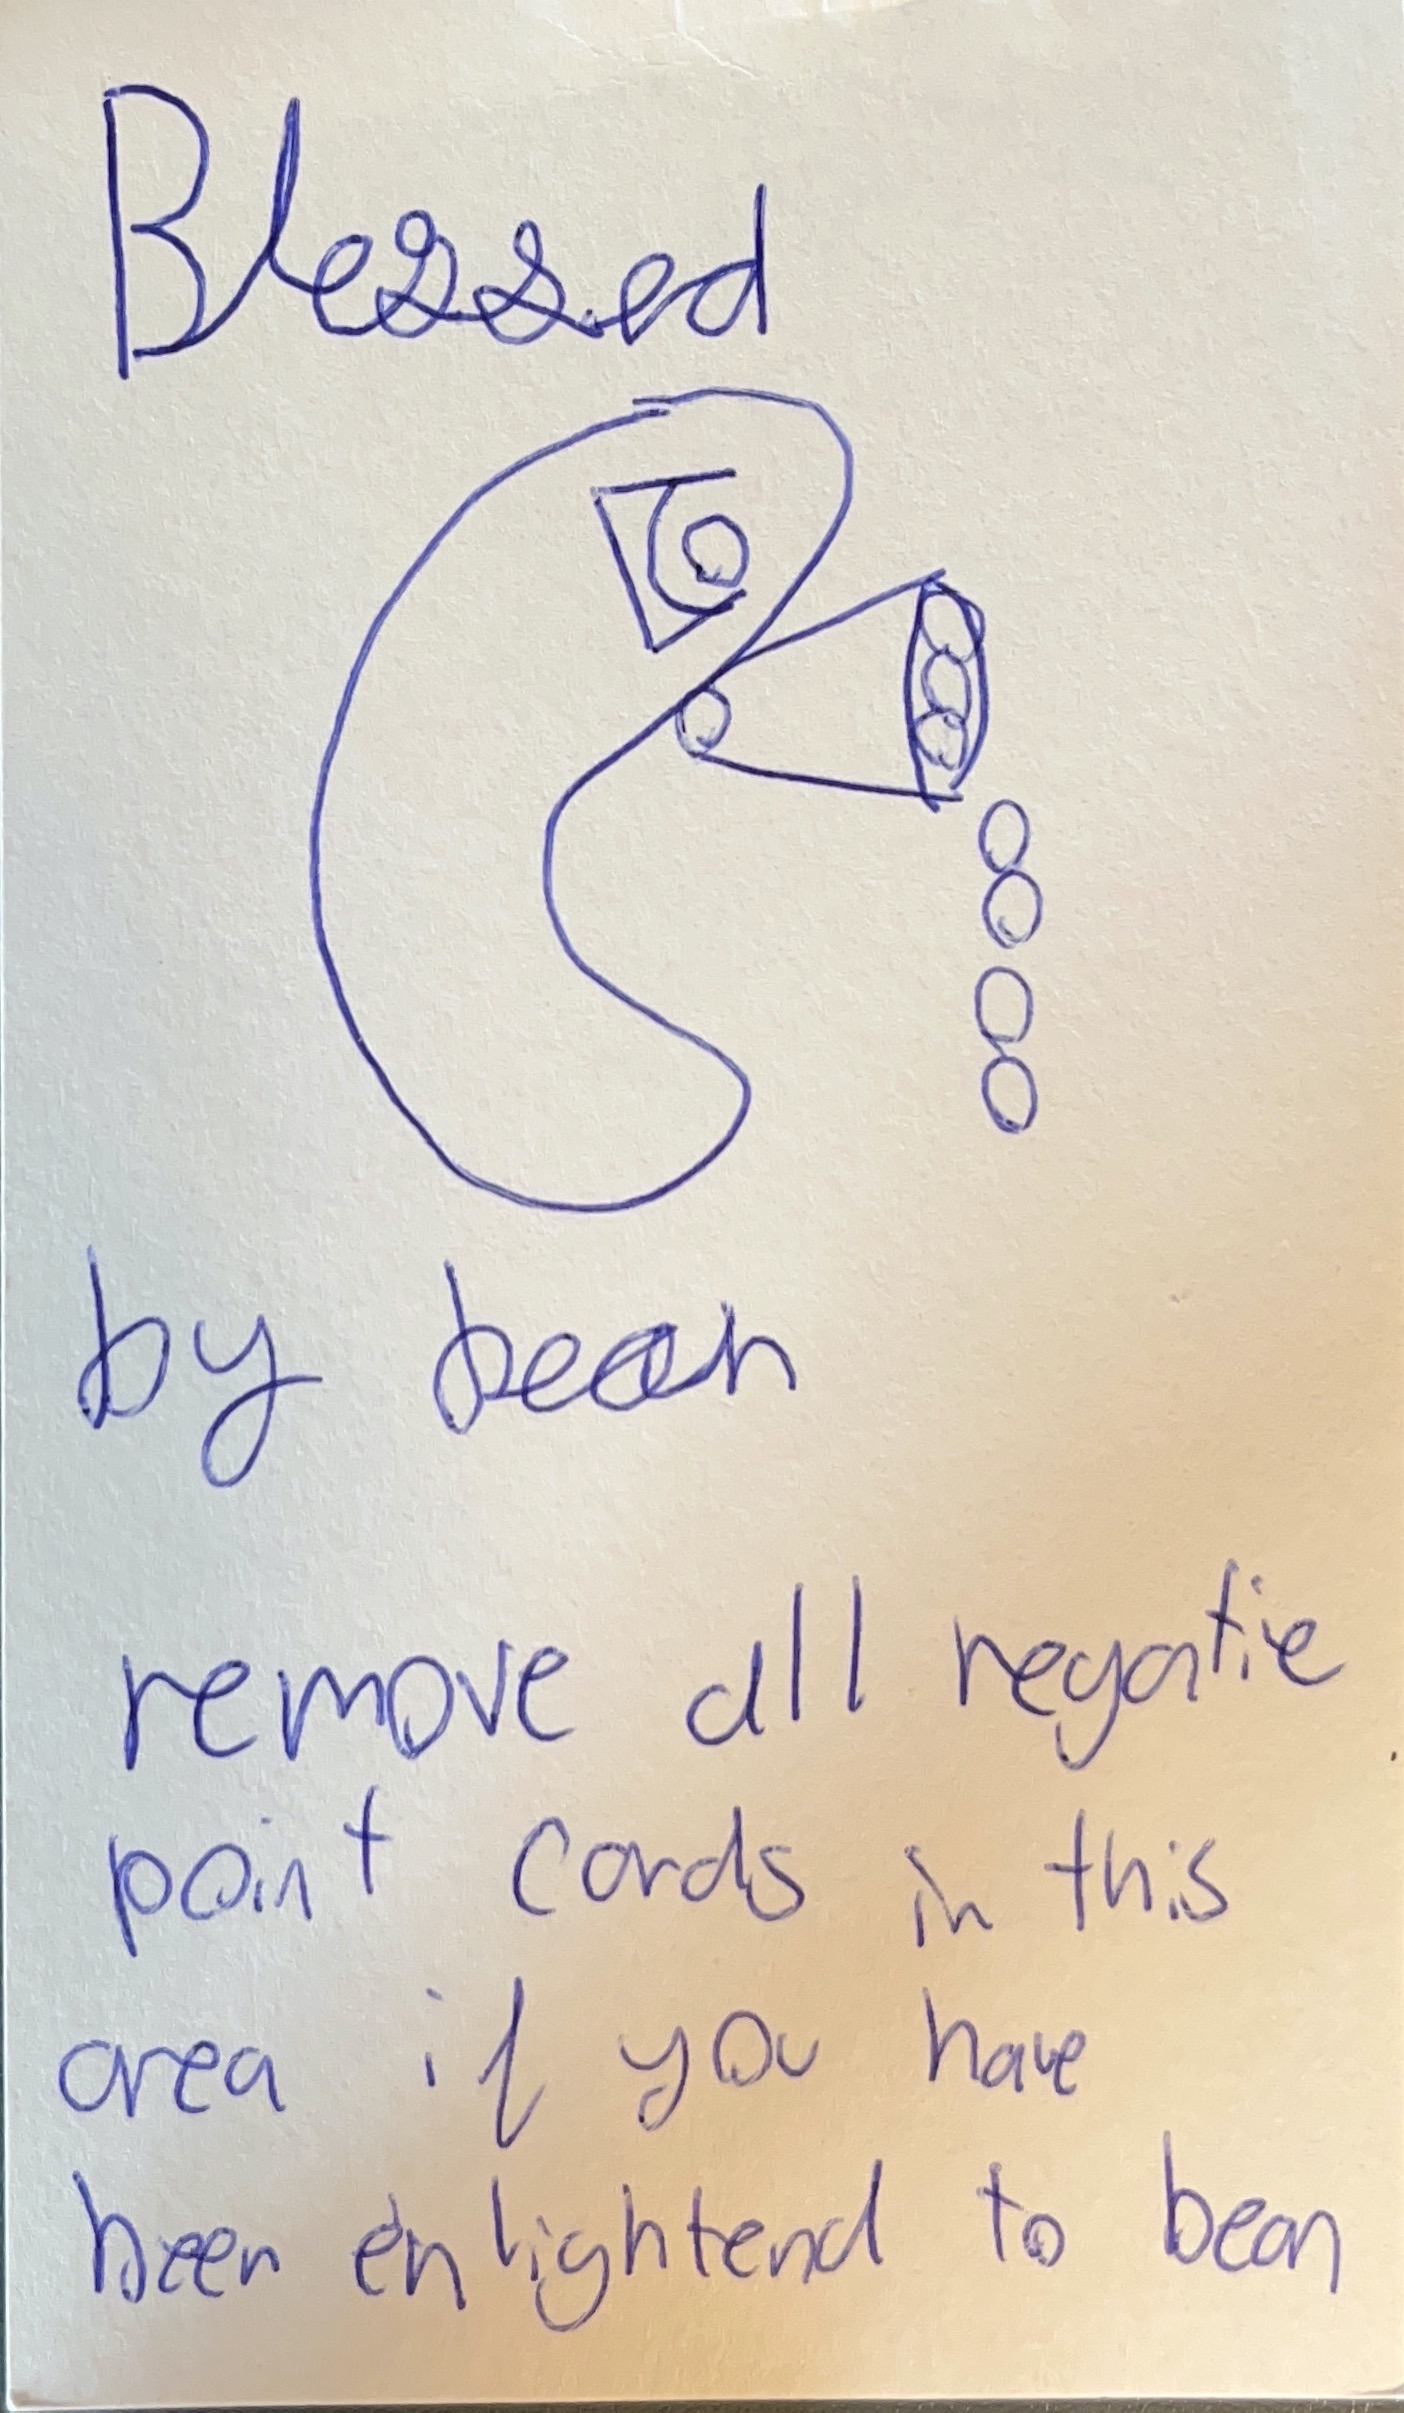 Blessed
by bean
remove all negatie
point cards in this
area if you have
been enlightend to bean